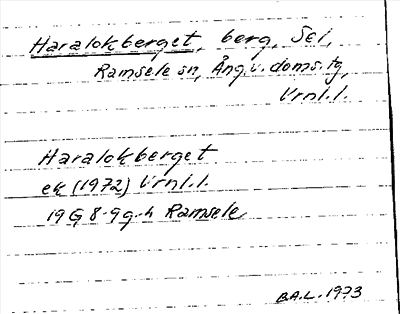 Haralokberget, berg, Sei,
Ramsele sn, Ång. v. doms. tg,
Vrnl.l.
Haralokberget
ek (1972) Vrnl.l.
19 G 8-9 g-h Ramsele
B.A.L. 1973